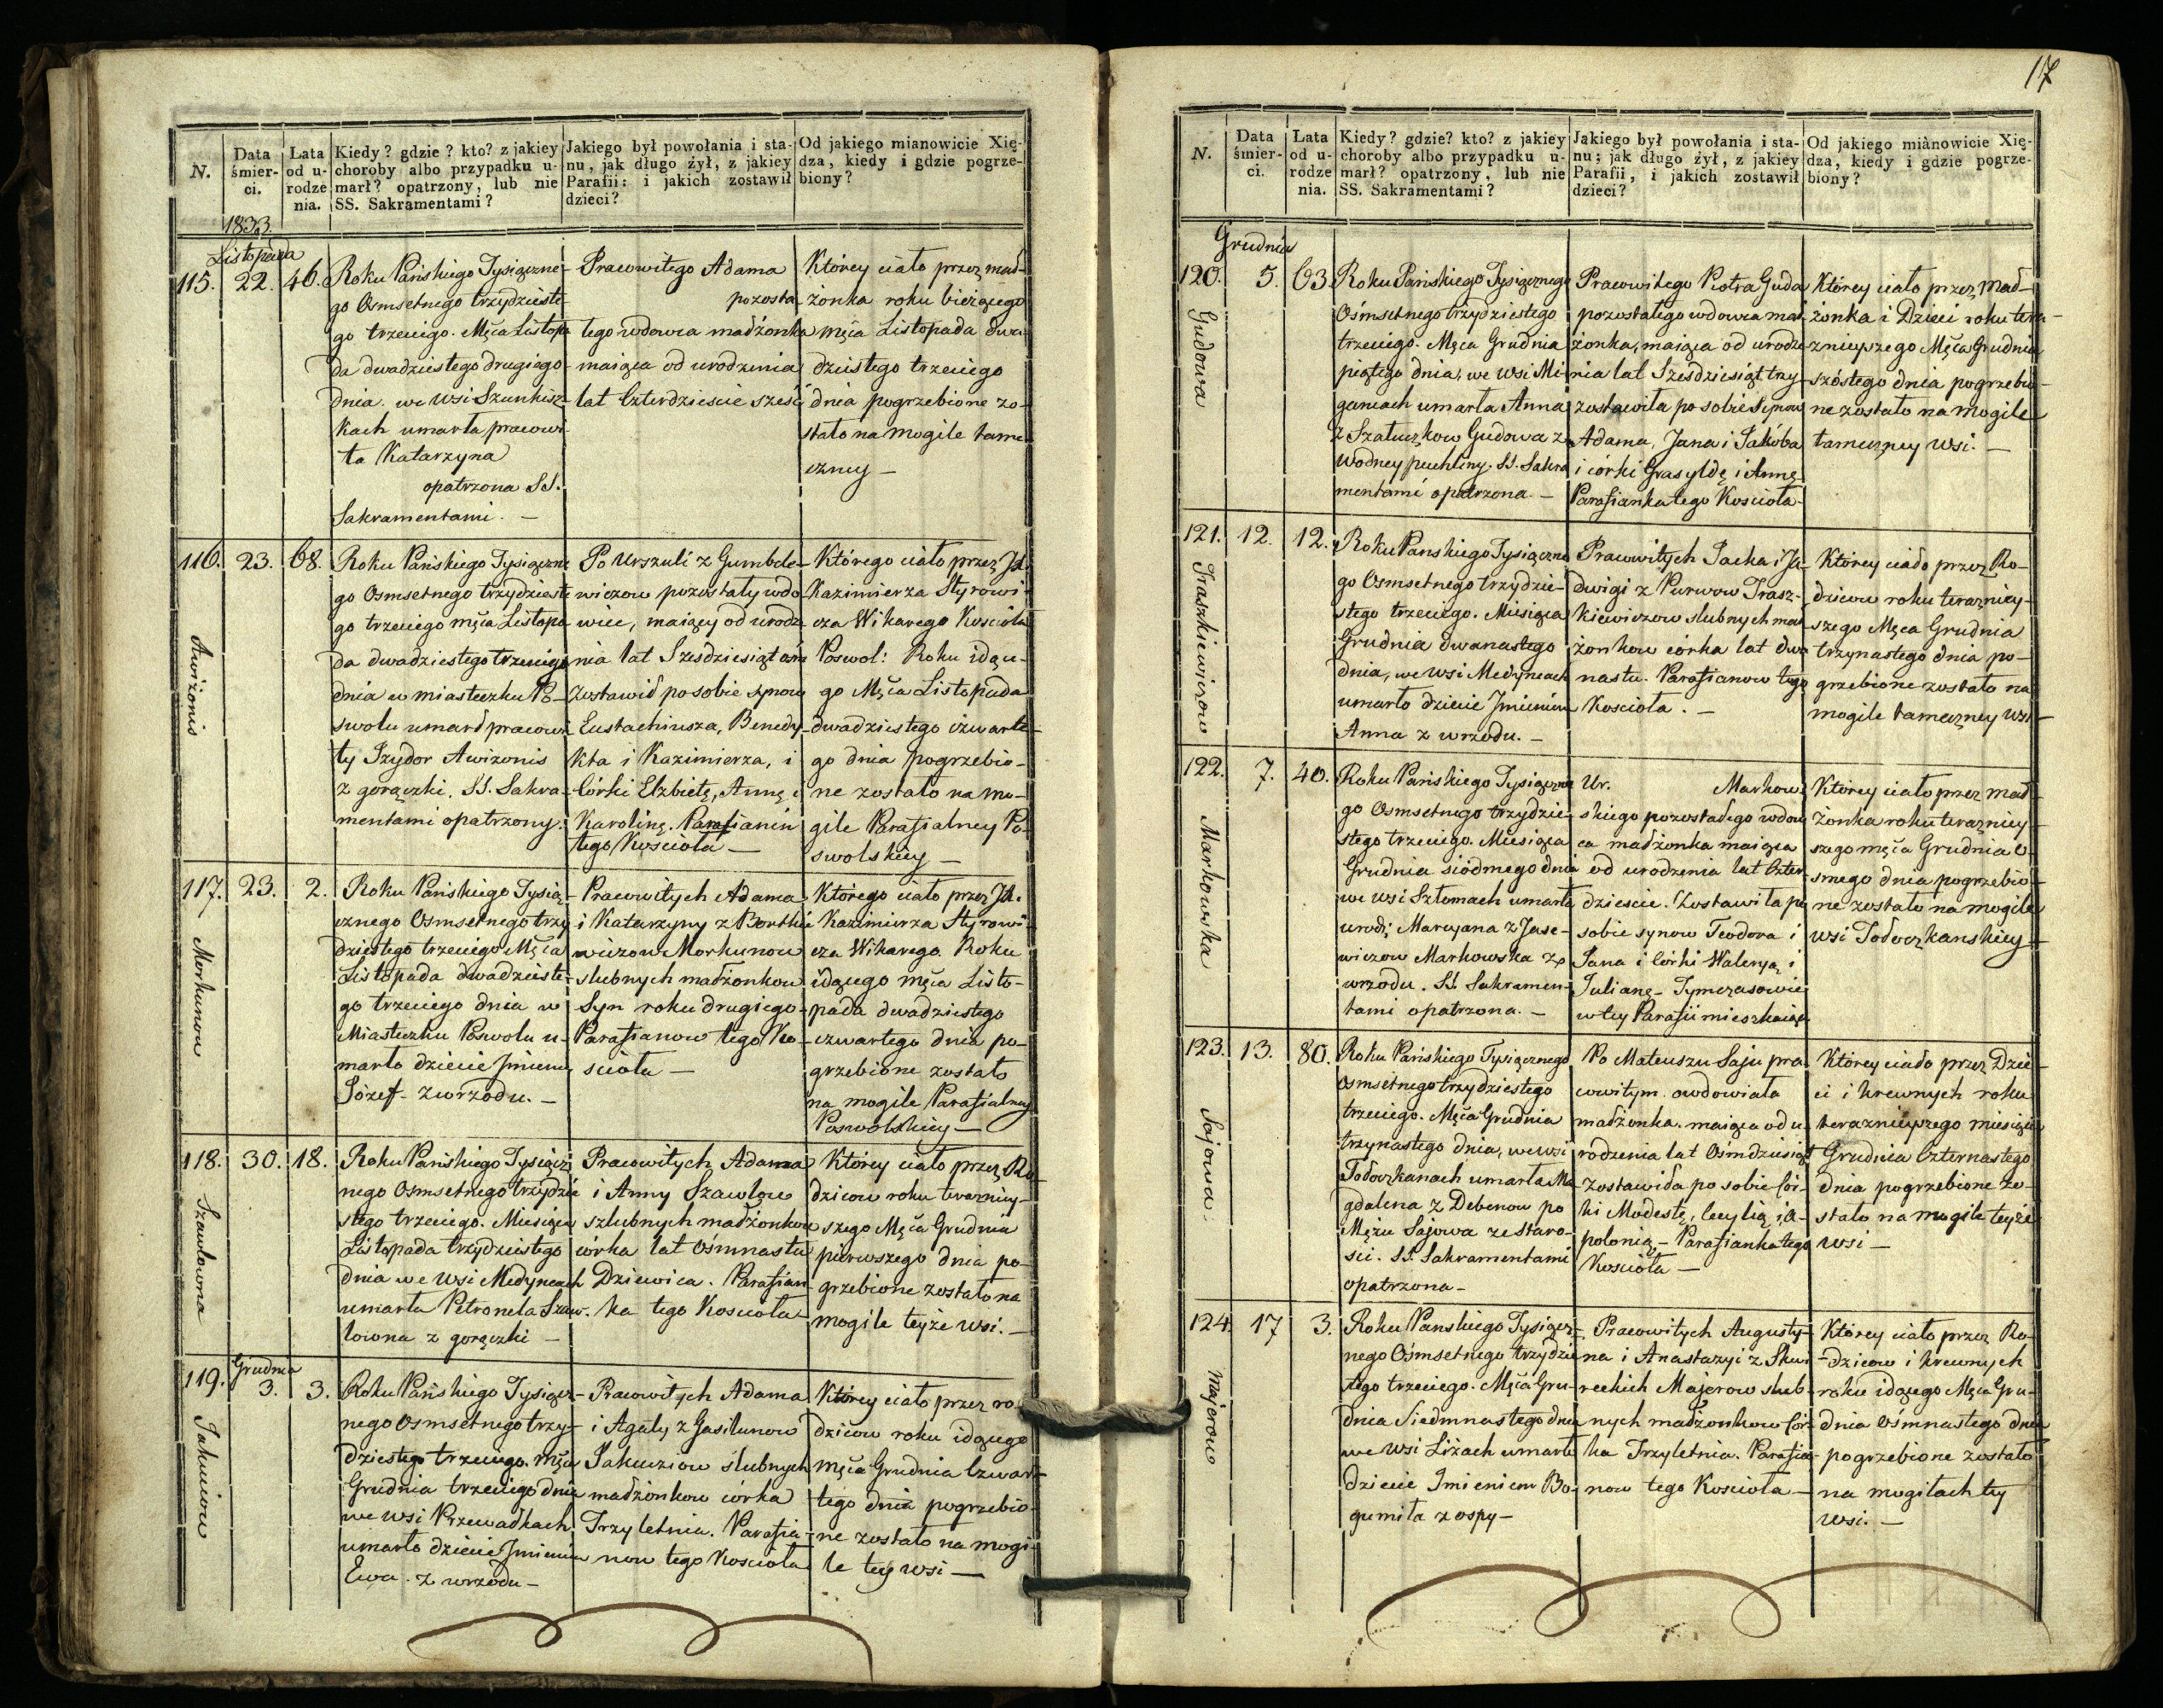 N.
Data śmier-
ci.
Lata
od u-
rodze
nia.
Kiedy? gdzie? kto? z jakiey
choroby albo przypadku u-
marł? opatrzony, lub nie
SS. Sakramentami?
Jakiego był powołania i sta-
nu, jak długo żył, z jakiey
Parafii: i jakich zostawił
dzieci?
Od jakiego mianowicie Xię-
dza, kiedy i gdzie pogrze-
biony?
1833.
Listopada
115. 22. 46.
Roku Pańskiego Tysiączne-
go Osmsetnego trzydzieste-
go trzeciego. Mca Listopa
da dwadziestego drugiego
dnia. we wsi Szunkisz-
kach umarła pracowi-
ta Katarzyna
opatrzona SS.
Sakramentami. —
Pracowitego Adama
pozosta-
łego wdowca małżonka
maiąca od urodzenia
lat Czterdzieście sześć
Którey ciało przez mał-
żonka roku bieżącego
mca Listopada dwu-
dziestego trzeciego
dnia pogrzebione zo-
stało na mogile tame-
czney —
116. 23. 68.
Awiżonis
Roku Pańskiego Tysiączne
go Osmsetnego trzydzieste
go trzeciego mca Listopa
da dwadziestego trzeciego
dnia w miasteczku Po-
swolu umarł pracowi-
ty Izydor Awizonis
z gorączki. SS. Sakra-
mentami opatrzony.
Po Urszuli z Gumbele-
wiczow pozostały wdo-
wiec, maiący od urodze
nia lat Szesdziesiąt ośm
Zostawił po sobie synow
Eustachiusza, Benedy-
kta i Kazimierza, i
Córki Elzbietę, Annę i
Karolinę. Parafianin
tego Kosciola —
Którego ciało przez JX.
Kazimierza Styrowi-
cza Wikarego Kościoła
Poswol: Roku idące-
go Mca Listopada
dwadziestego czwarte-
go dnia pogrzebio-
ne zostało na mo-
gile Parafialney Po-
swolskiey —
117. 23. 2.
Morkunow
Roku Pańskiego Tysią-
cznego Osmsetnego trzy
dziestego trzeciego Mca
Listopada dwadzieste-
go trzeciego dnia w
Miasteczku Poswolu u-
marło dziecie Jmieniem
Józef z wrzodu. —
Pracowitych Adama
i Katarzyny z Bortkie-
wiczow Morkunow
slubnych małżonkow
Syn roku drugiego-
Parafianow tego Ko-
ścioła —
Którego ciało przez JX.
Kazimierza Styrowi-
cza Wikarego. Roku
idącego mca Listo-
pada dwadziestego
czwartego dnia po-
grzebione zostało
na mogile Parafialney
Poswolskiey —
118. 30. 18.
Szawłowna
Roku Pańskiego Tysiącz
nego Osmsetnego trzydzie
stego trzeciego. Miesiąca
Listopada trzydziestego
dnia we wsi Medyncach
umarła Petronela Szaw-
łowna z gorączki —
Pracowitych Adama
i Anny Szawłow
szlubnych małżonkow
córka lat Ośmnastu
Dziewica. Parafian-
ka tego Kościoła
Którey ciało przez Ro-
dzicow roku teraźniey-
szego Mca Grudnia
pierwszego dnia po-
grzebione zostało na
mogile teyże wsi. —
Grudnia
119. 3. 3.
Jakuciow
Roku Pańskiego Tysiącz-
nego Osmsetnego trzy-
dziestego trzeciego. mca
Grudnia trzeciego dnia
we wsi Przewadkach
umarło dziecie Jmieniem
Ewa. z wrzodu —
Pracowitych Adama
i Agaty z Gasilunow
Jakuciow slubnych
małżonkow corka
Trzyletnia. Parafia-
now tego Kosciola
Którey ciało przez ro
dzicow roku idącego
mca Grudnia Czwar-
tego dnia pogrzebio-
ne zostało na mogi-
le tey wsi —
17
N.
Data
śmier-
ci.
Lata
od u-
rodze
nia.
Kiedy? gdzie? kto? z jakiey
choroby albo przypadku u-
marł? opatrzony, lub nie
SS. Sakramentami?
Jakiego był powołania i sta-
nu; jak długo żył, z jakiey
Parafii, i jakich zostawił
dzieci?
Od jakiego mianowicie Xię-
dza, kiedy i gdzie pogrze-
biony?
Grudnia
120. 5. 63.
Gudowa
Roku Pańskiego Tysiącznego
Ośmsetnego trzydziestego
trzeciego. Mca Grudnia
piątego dnia, we wsi Mi-
ganiach umarła Anna
z Szatuczkow Gudowa z
wodney puchliny. SS. Sakra
mentami opatrzona. —
Pracowitego Piotra Guda
pozostałego wdowca mał-
żonka, maiąca od urodze
nia lat Szesdziesiąt trzy
zostawiła po sobie Synow
Adama, Jana i Jakóba
i córki Grasyldę i Annę
Parafianka tego Kosciola
Którey ciało przez Mał-
żonka i Dzieci roku tera-
znieyszego Mca Grudnia
szóstego dnia pogrzebio-
ne zostało na mogile
tameczney wsi. —
121. 12. 12.
Traszkiewiczow
Roku Panskiego Tysiączne
go Osmsetnego trzydzie-
stego trzeciego. Miesiąca
Grudnia dwanastego
dnia, we wsi Medyncach
umarło dziecie Jmieniem
Anna z wrzodu. —
Pracowitych Jacka i Ja-
dwigi z Purwow Trasz-
kiewiczow slubnych mał
żonkow córka lat dwa
nastu. Parafianow tego
Kosciola. —
Którey ciało przez Ro-
dzicow roku teraźniey-
szego Mca Grudnia
trzynastego dnia po-
grzebione zostało na
mogile tameczney wsi —
122. 7. 40.
Markowska
Roku Pańskiego Tysiączne
go Osmsetnego trzydzie-
stego trzeciego. Miesiąca
Grudnia siódmego dnia
we wsi Sztomach umarła
urodz: Maryana z Jase-
wiczow Markowska z
wrzodu. SS. Sakramen-
tami opatrzona. —
Ur. Markow-
skiego pozostałego wdow
ca małżonka maiąca
od urodzenia lat Czter-
dziescie. Zostawiła po
sobie synow Teodora i
Jana i Córki Waleryą i
Julianę — Tymczasowie
w tey Parafii mieszkaiąca
Którey ciało przez mał-
żonka roku teraźniey-
szego mca Grudnia o-
smego dnia pogrzebio-
ne zostało na mogile
wsi Todoczkanskiey —
123. 13. 80.
Sojowa.
Roku Pańskiego Tysiącznego
Osmsetnego trzydziestego
trzeciego. Mca Grudnia
trzynastego dnia, we wsi
Todoczkanach umarła Ma
gdalena z Debenow po
Mężu Sajowa ze staro-
sci. SS. Sakramentami
opatrzona —
Po Mateuszu Saju pra
cowitym owdowiała
małżonka. maiąca od u-
rodzenia lat Ośmdziesiąt
zostawiła po sobie Cór-
ki Modestę, Cecylią i A-
polonią — Parafianka tego
Kościoła —
Którey ciało przez Dzie-
ci i krewnych roku
teraznieyszego miesiąca
Grudnia Czternastego
dnia pogrzebione zo-
stało na mogile teyże
wsi —
124. 17 3.
Majorow
Roku Panskiego Tysiącz-
nego Ośmsetnego trzydzie
stego trzeciego. Mca Gru-
dnia Siedmnastego dnia
we wsi Liżach umarło
dziecie Jmieniem Bo-
gumiła z ospy —
Pracowitych Augusty-
na i Anastazyi z Sku-
reckich Majorow slub-
nych małżonkow Cór-
ka Trzyletnia. Parafia-
now tego Kościoła —
Którey ciało przez Ro-
dzicow i krewnych
roku idącego Mca Gru-
dnia ośmnastego dnia
pogrzebione zostało
na mogiłach tey
wsi. —